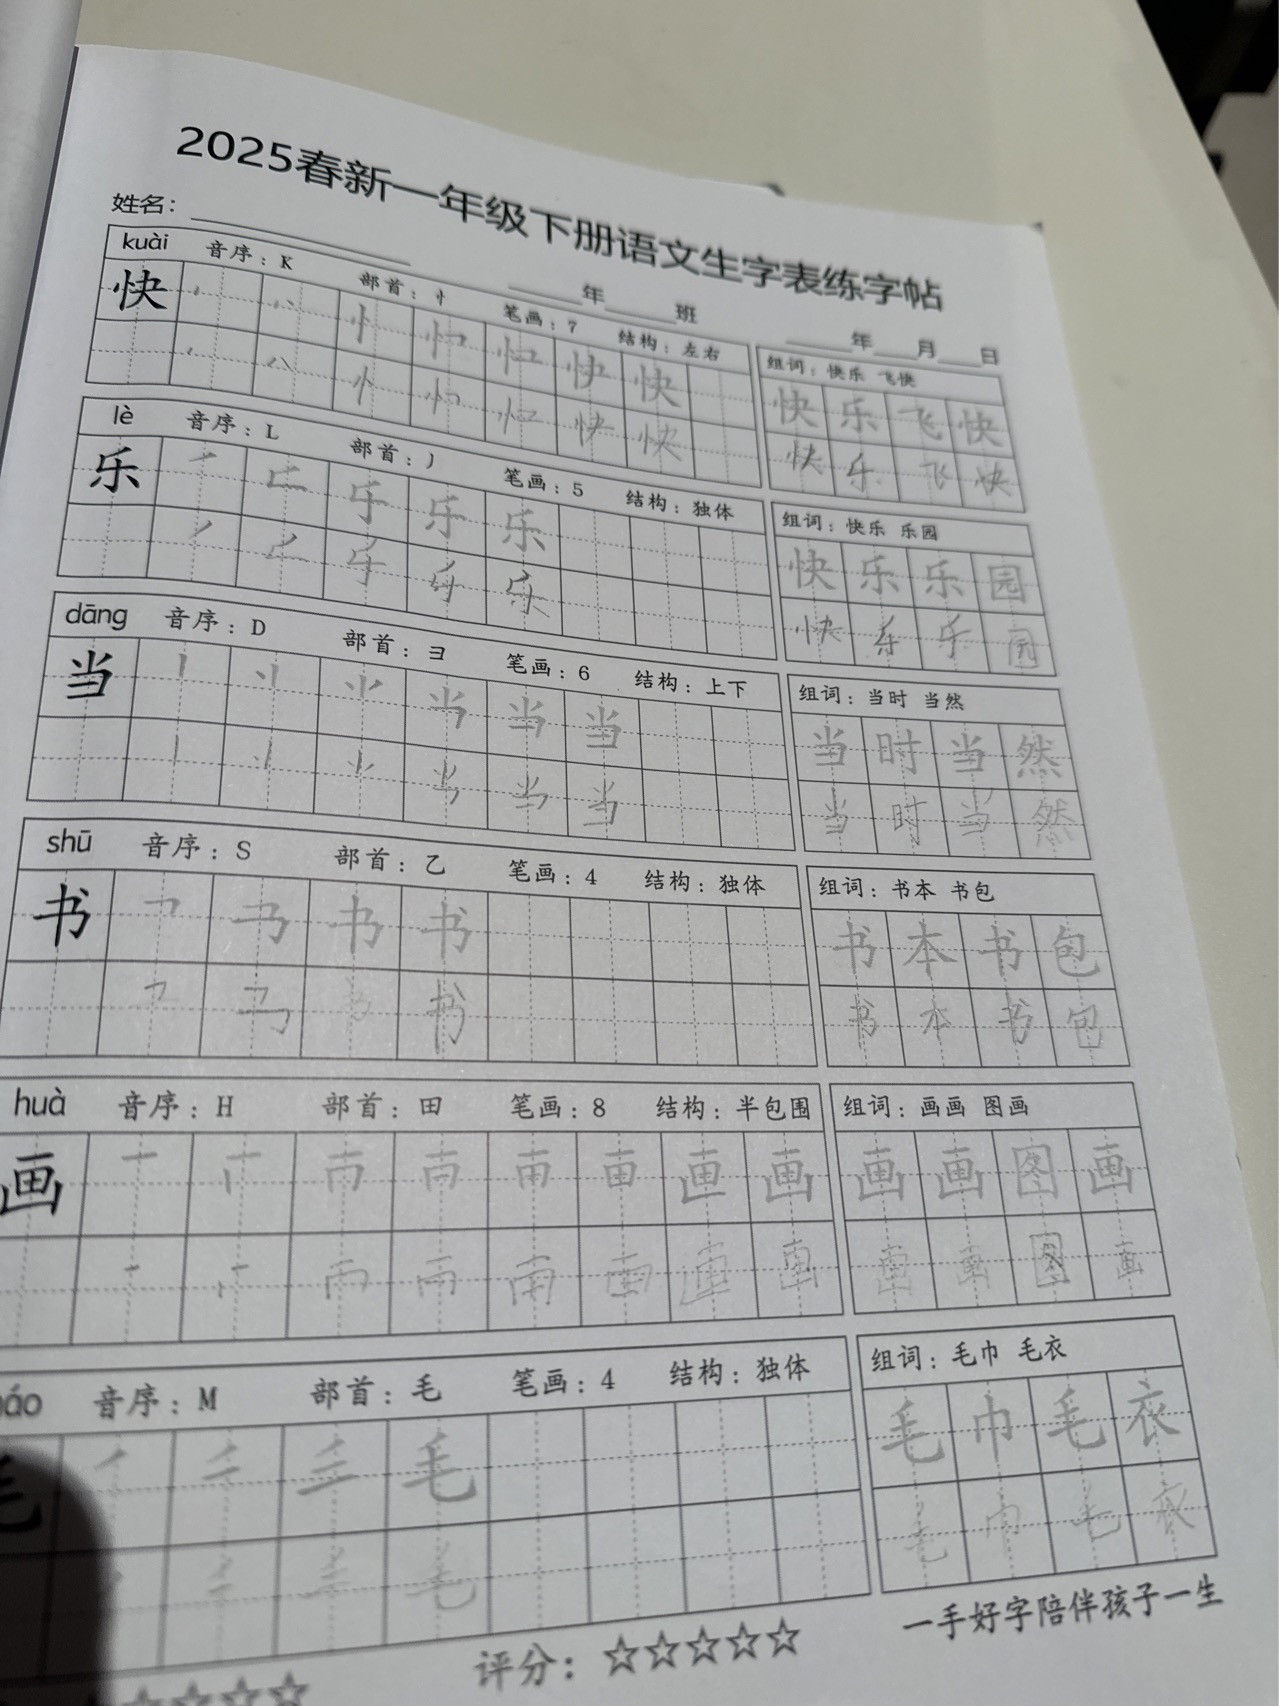 2025春新一年级下册语文生字表练字帖
姓名：
年 班
年 月 日
kuài 音序：K 部首：忄 笔画：7 结构：左右 组词：快乐 飞快
快 快 快 乐 飞 快
快 快 乐 飞 快
lè 音序：L 部首：丿 笔画：5 结构：独体 组词：快乐 乐园
乐 乐 快 乐 乐 园
乐 快 乐 乐 园
dāng 音序：D 部首：彐 笔画：6 结构：上下 组词：当时 当然
当 当 当 时 当 然
当 当 时 当 然
shū 音序：S 部首：乙 笔画：4 结构：独体 组词：书本 书包
书 书 书 本 书 包
书 书 本 书 包
huà 音序：H 部首：田 笔画：8 结构：半包围 组词：画画 图画
画 画 画 画 图 画
画 画 画 图 画
áo 音序：M 部首：毛 笔画：4 结构：独体 组词：毛巾 毛衣
毛 毛 毛 巾 毛 衣
毛 毛 巾 毛 衣
评分：☆☆☆☆☆
一手好字陪伴孩子一生